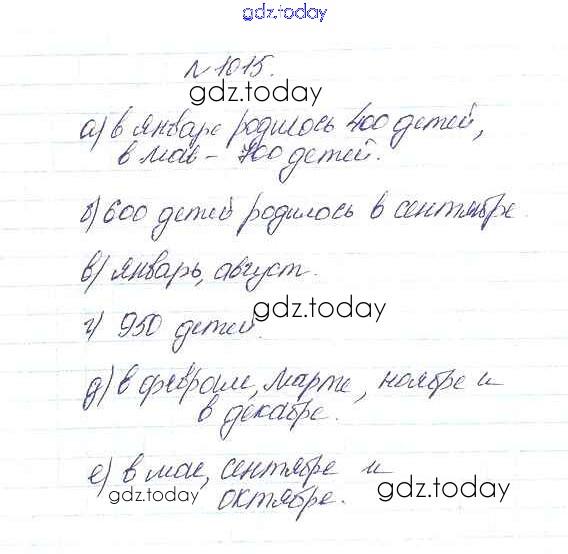 gdz.today
№ 1015.
gdz.today
а) в январе родилось 400 детей,
в мае - 700 детей.
б) 600 детей родилось в сентябре.
в) январь, август.
gdz.today
г) 950 детей.
д) в феврале, марте, ноябре и
в декабре.
е) в мае, сентябре и
gdz.today октябре. gdz.today